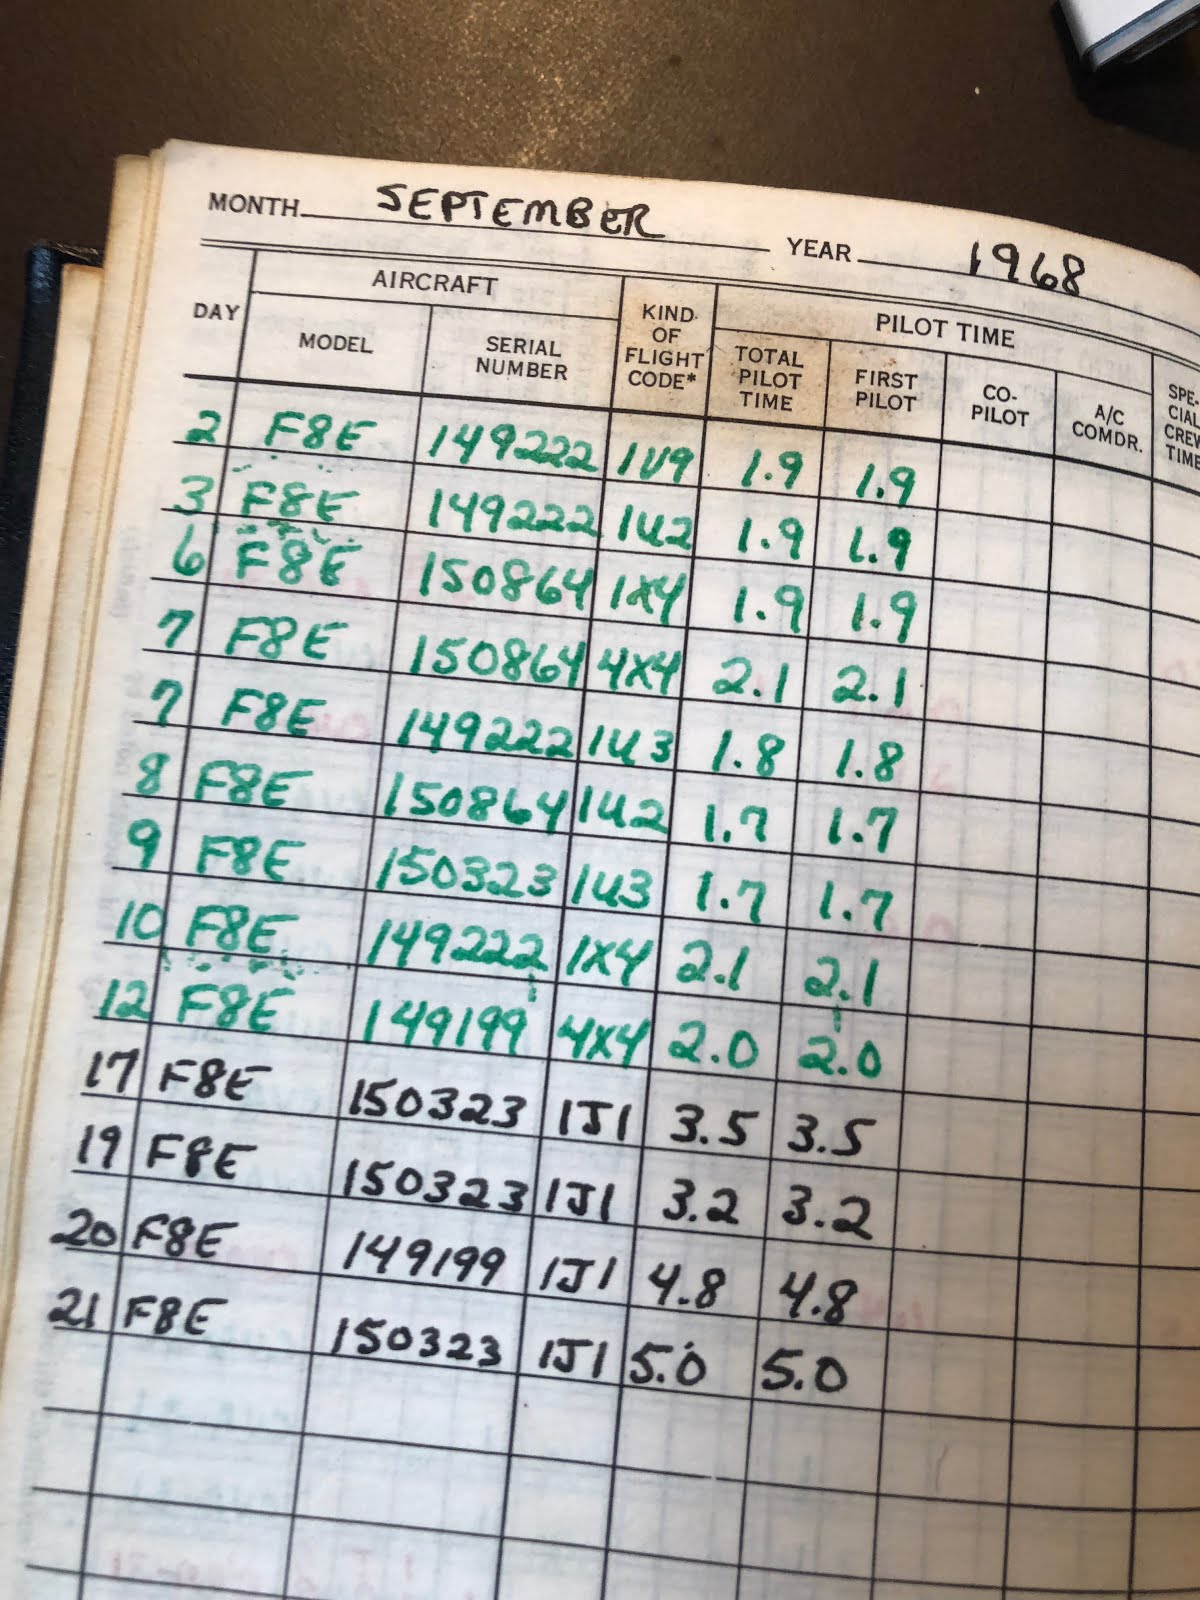 MONTH SEPTEMBER YEAR 1968
DAY AIRCRAFT KIND OF FLIGHT CODE* PILOT TIME
MODEL SERIAL NUMBER TOTAL PILOT TIME FIRST PILOT CO-PILOT A/C COMDR. SPE-CIAL CREW TIME
2 F8E 149222 1U9 1.9 1.9
3 F8E 149222 1U2 1.9 1.9
6 F8E 150864 1X4 1.9 1.9
7 F8E 150864 4X4 2.1 2.1
7 F8E 149222 1U3 1.8 1.8
8 F8E 150864 1U2 1.7 1.7
9 F8E 150323 1U3 1.7 1.7
10 F8E 149222 1X4 2.1 2.1
12 F8E 149199 4X4 2.0 2.0
17 F8E 150323 1J1 3.5 3.5
19 F8E 150323 1J1 3.2 3.2
20 F8E 149199 1J1 4.8 4.8
21 F8E 150323 1J1 5.0 5.0